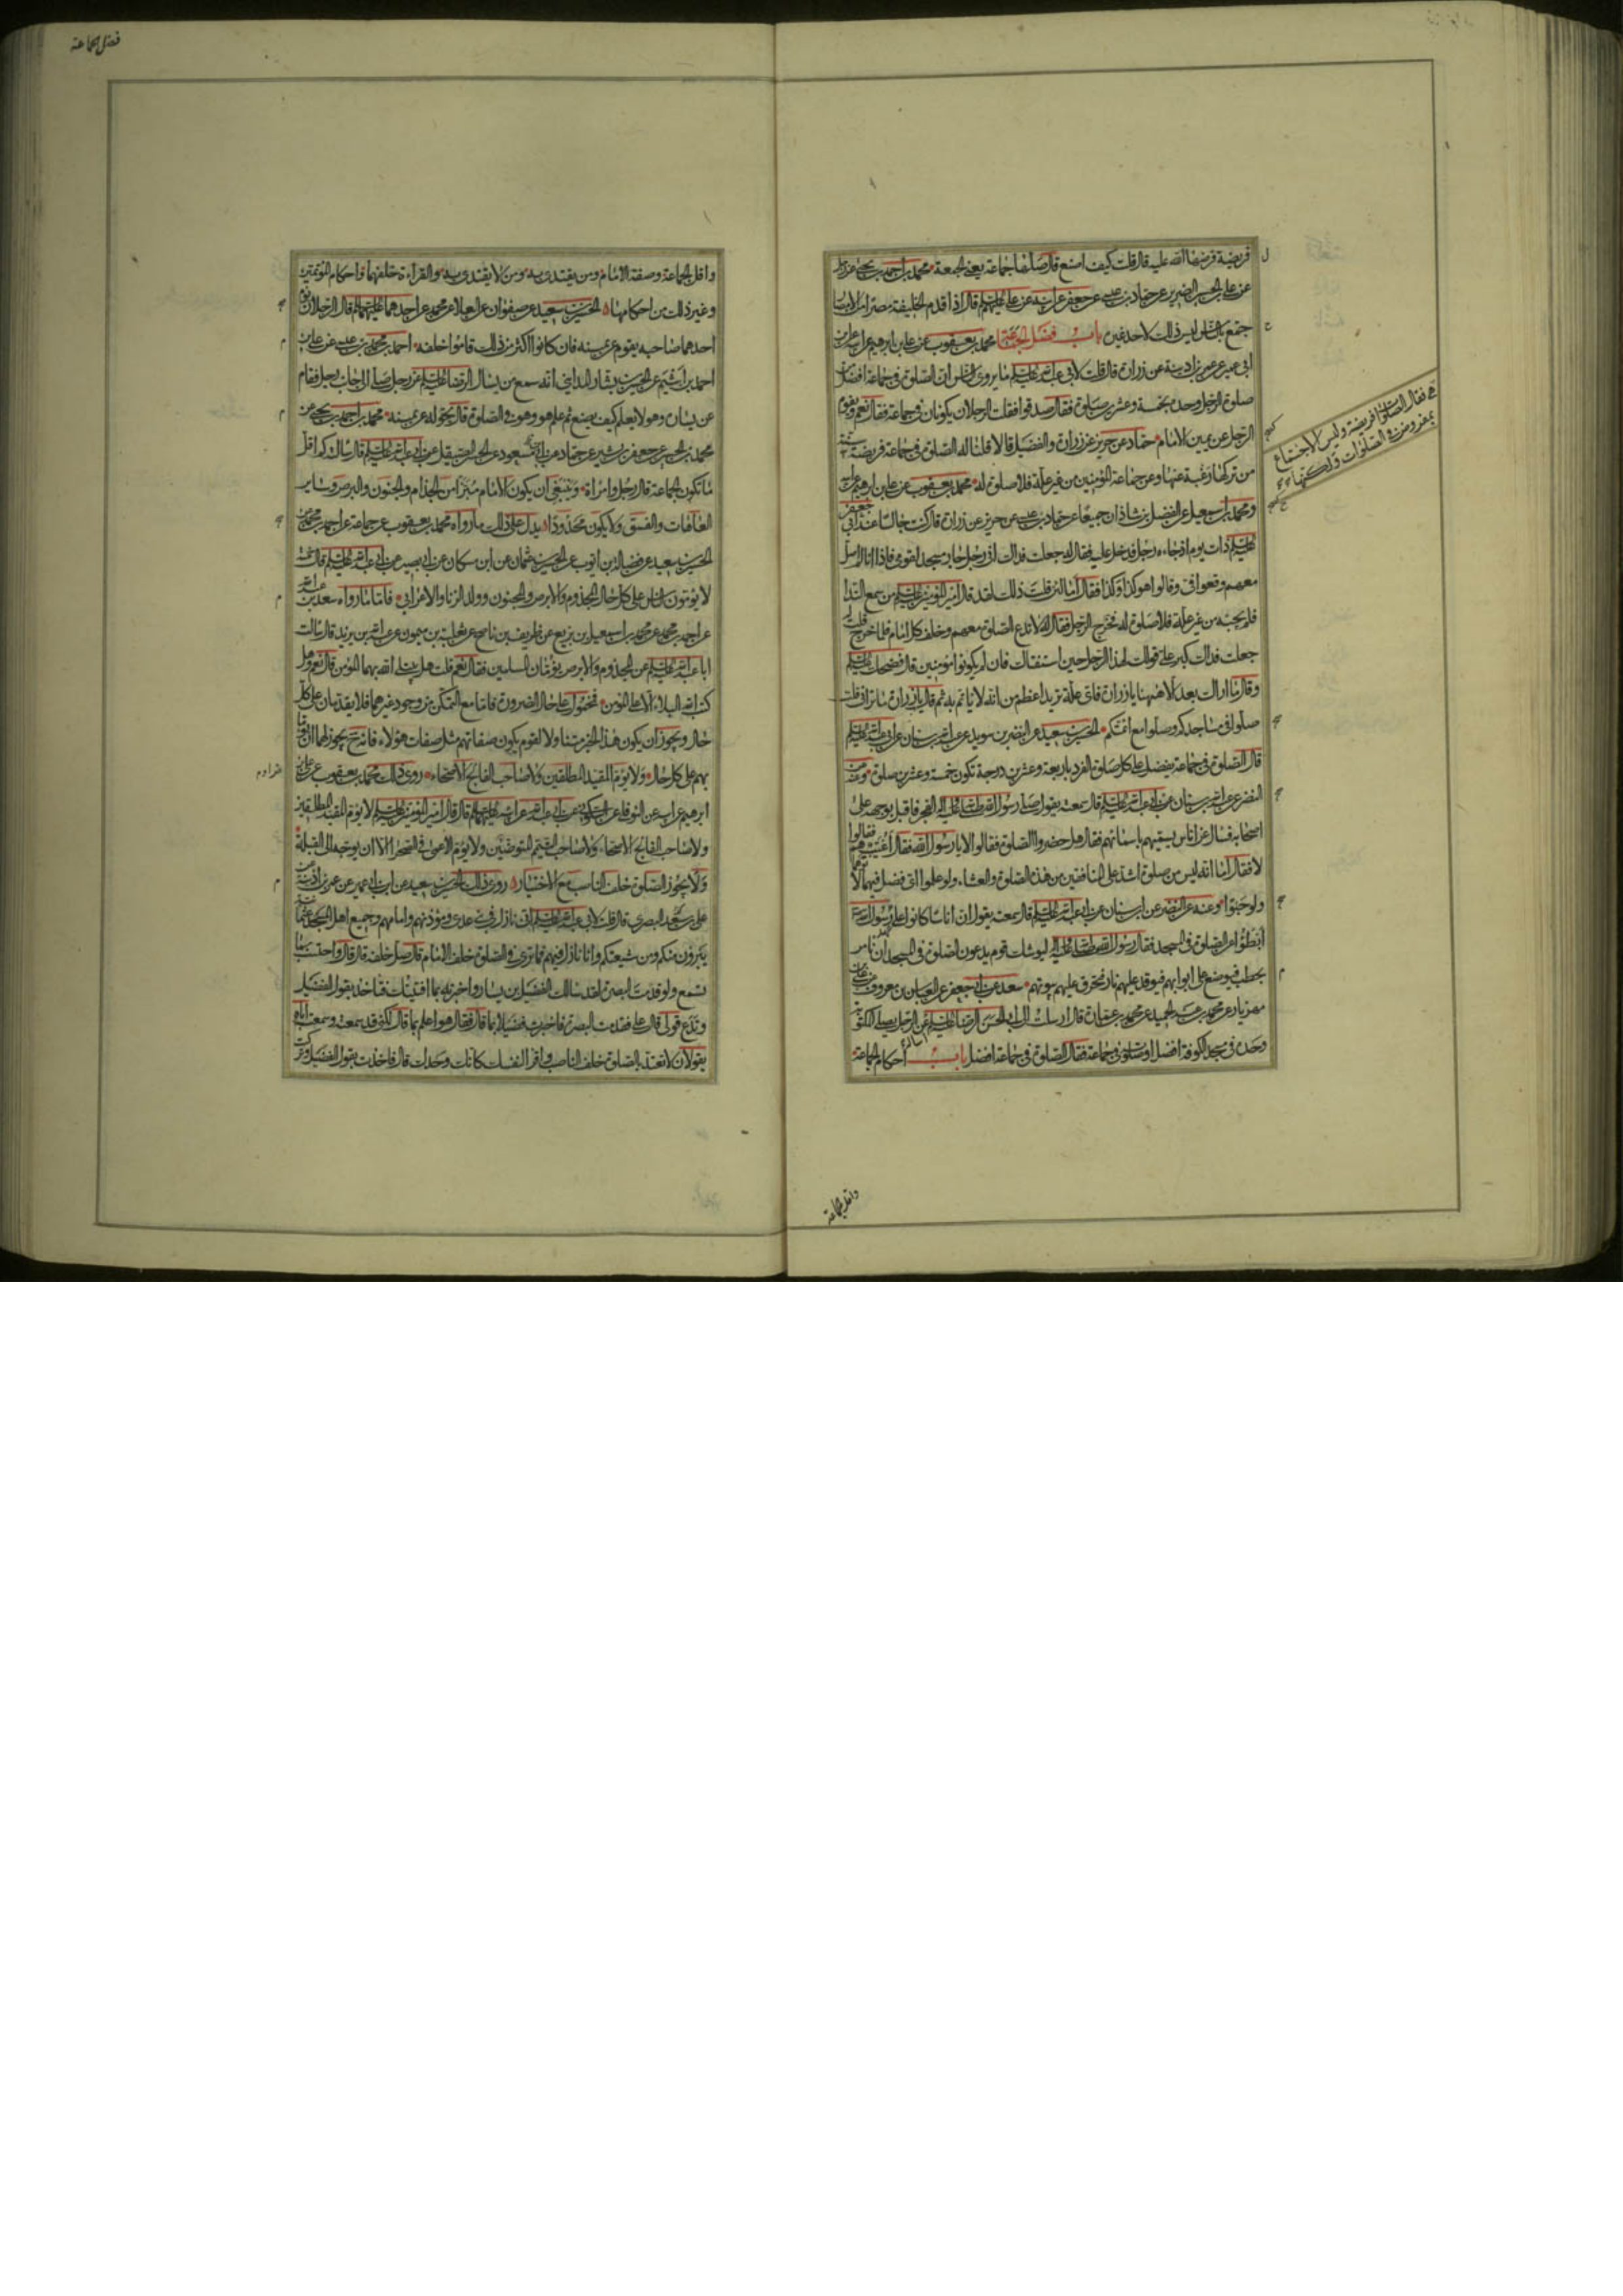 فريضة فرضها الله عليه قال قلت كيف اصنع قال صلوا جماعة يعنى الجمعة محمد بن احمد بن يحيى عن
عن على بن الحسين الضرير عن حماد بن عيسى عن جعفر عن ابيه عن على عليه السلم قال اذا قدم الخليفة مصرا من الامصار
جمع بالناس ليس ذلك لاحد غيره باب فضل الجماعة محمد بن يعقوب عن على بن ابرهيم عن ابيه عن ابن
ابى عمير عن عمر بن اذينة عن زرارة قال قلت لابى عبد الله عليه السلم ما يروى الناس ان الصلوة فى جماعة افضل من
صلوة الرجل وحده بخمسة وعشرين صلوة فقال صدقوا فقلت الرجلان يكونان فى جماعة فقال نعم ويقوم
الرجل عن يمين الامام حماد عن حريز عن زرارة والفضيل قالا قلنا له الصلوة فى جماعة فريضة
هى فقال الصلوات فريضة وليس الاجتماع
بمفروض فى الصلوات ولكنها سنة
من تركها رغبة عنها وعن جماعة المؤمنين من غير علة فلا صلوة له محمد بن يعقوب عن على بن ابرهيم عن ابيه
ومحمد بن اسمعيل عن الفضل بن شاذان جميعا عن حماد بن عيسى عن حريز عن زرارة قال كنت جالسا عند ابى جعفر
عليه السلم ذات يوم اذ جاءه رجل فدخل عليه فقال له جعلت فداك انى رجل جار مسجد لقومى فاذا انا لم اصل
معهم وقعوا فى وقالوا هو كذا وكذا فقال اما لئن قلت ذلك لقد قال امير المؤمنين عليه السلم من سمع الندا
فلم يجبه من غير علة فلا صلوة له فخرج الرجل فقال له لا تدع الصلوة معهم وخلف كل امام فلما خرج قلت له
جعلت فداك كبر على قولك لهذا الرجل حين استفتاك فان لم يكونوا مؤمنين قال فضحك عليه السلم
وقال ما اراك بعد الا ههنا يا زرارة فاى علة تريد اعظم من انه لا ياتم به ثم قال يا زرارة ما ترانى قلت
صلوا فى مساجدكم وصلوا مع ائمتكم الحسين بن سعيد عن النضر بن سويد عن عبد الله بن سنان عن ابى عبد الله عليه السلم
قال الصلوة فى جماعة يفضل على كل صلوة الفرد باربعة وعشرين درجة تكون خمسة وعشرين صلوة وعنه عن
النضر عن عبد الله بن سنان عن ابى عبد الله عليه السلم قال سمعته يقول صلى رسول الله صلى الله عليه واله الفجر فاقبل بوجهه على
اصحابه فسال عن اناس يسميهم باسمائهم فقال هل حضروا الصلوة فقالوا لا يا رسول الله فقال اغيب هم فقالوا
لا فقال اما انه ليس من صلوة اشد على المنافقين من هذه الصلوة والعشاء ولو علموا اى فضل فيهما لاتوهما
ولو حبوا وعنه عن النضر عن ابن سنان عن ابى عبد الله عليه السلم قال سمعته يقول ان اناسا كانوا على عهد رسول الله
ابطؤا عن الصلوة فى المسجد فقال رسول الله صلى الله عليه واله ليوشك قوم يدعون الصلوة فى المسجد ان نامر
بحطب فيوضع على ابوابهم فيوقد عليهم نار فتحرق عليهم بيوتهم سعد عن ابى جعفر عن العباس بن معروف عن على بن
مهزيار عن محمد بن عبد الحميد عن محمد بن عمارة قال ارسلت الى ابى الحسن الرضا عليه السلم اساله عن الرجل يصلى المكتوبة
وحده فى مسجد الكوفة افضل او صلوته فى جماعة فقال الصلوة فى جماعة افضل باب احكام الجماعة
واقل الجماعة
فضل الجماعة
واقل الجماعة وصفة الامام ومن يقتدى به ومن لا يقتدى به والقراءة خلفهما واحكام المؤتمين
وغير ذلك من احكامها الحسين بن سعيد عن صفوان عن العلاء عن محمد عن احدهما عليهما السلم قال الرجلان يؤم
احدهما صاحبه يقوم عن يمينه فان كانوا اكثر من ذلك قاموا خلفه احمد بن محمد بن عيسى عن على بن
احمد بن اشيم عن الحسين بن بشار المداينى انه سمع من يسال الرضا عليه السلم عن رجل صلى الى جانب رجل فقام
عن يساره وهو لا يعلم كيف يصنع ثم علم هو وهو فى الصلوة قال يحوله عن يمينه محمد بن احمد بن يحيى عن
محمد بن الحسين عن جعفر بن بشير عن حماد عن ابى مسعود عن الحسن الصيقل عن ابى عبد الله عليه السلم قال سالته كم اقل
ما تكون الجماعة قال رجل وامراة وينبغى ان يكون الامام مبرا من الجذام والجنون والبرص وساير
العاهات والفسق ولا يكون محدودا يدل على ذلك ما رواه محمد بن يعقوب عن جماعة عن احمد بن محمد عن
الحسين بن سعيد عن فضالة بن ايوب عن الحسين بن عثمان عن ابن مسكان عن ابى بصير عن ابى عبد الله عليه السلم قال خمسة
لا يؤمون الناس على كل حال المجذوم والابرص والمجنون وولد الزنا والاعرابى فاما ما رواه سعد بن عبد الله
عن احمد بن محمد عن محمد بن اسمعيل بن بزيع عن ظريف بن ناصح عن ثعلبة بن ميمون عن عبد الله بن يزيد قال سالت
ابا عبد الله عليه السلم عن المجذوم والابرص يؤمان المسلمين فقال نعم قلت هل يبتلى الله بهما المؤمن قال نعم وهل
كتب الله البلاء الا على المؤمن فمحمول على حال الضرورة فاما مع التمكن من وجود غيرهما فلا يقدمان على كل
حال ويجوز ان يكون هذا الخبر متناولا لقوم يكون صفاتهم مثل صفات هؤلاء فانه ح يجوز لهما ان يؤما
بهم على كل حال ولا يؤم المقيد المطلقين ولا صاحب الفالج الاصحاء روى ذلك محمد بن يعقوب عن على بن
ابرهيم عن ابيه عن النوفلى عن السكونى عن ابى عبد الله عن ابيه عليهما السلم قال قال امير المؤمنين عليه السلم لا يؤم المقيد المطلقين
ولا صاحب الفالج الاصحاء ولا صاحب التيمم المتوضئين ولا يؤم الاعمى فى الصحراء الا ان يوجه الى القبلة
ولا يجوز الصلوة خلف الناصب مع الاختيار روى ذلك الحسين بن سعيد عن ابن ابى عمير عن عمر بن اذينة عن
على بن سعد البصرى قال قلت لابى عبد الله عليه السلم انى نازل فى بنى عدى ومؤذنهم وامامهم وجميع اهل المسجد عثمانية
يتبرؤن منكم ومن شيعتكم وانا نازل فيهم فما ترى فى الصلوة خلف الامام قال صل خلفه قال قال واحتسب بما
تسمع ولو قدمت البصرة لقد سالك الفضيل بن يسار واخبرته بما افتيتك فتاخذ بقول الفضيل
وتدع قولى قال على فقدمت البصرة فاخبرت فضيلا بما قال فقال هو اعلم بما قال لكنى قد سمعته وسمعت اباه
يقولان لا تعتد بالصلوة خلف الناصب واقرا لنفسك كانك وحدك قال فاخذت بقول الفضيل وتركت